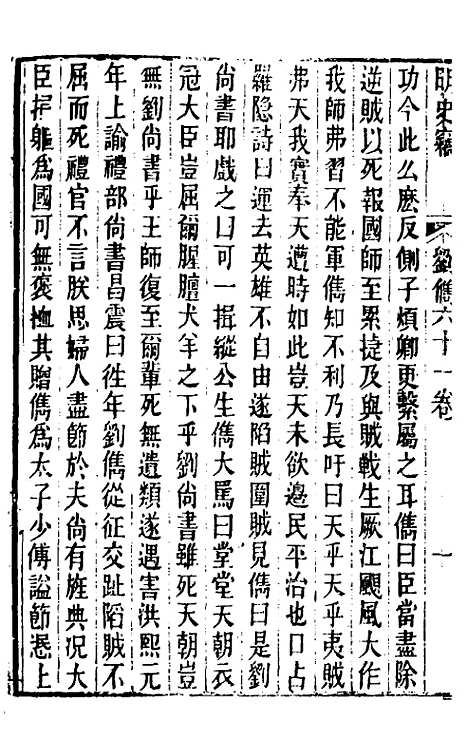 明史竊　劉儁六十一卷　一
功今此么麽反側子煩卿更繫屬之耳儁曰臣當盡除
逆賊以死報國師至累捷及與賊戰生厥江颶風大作
我師弗習不能軍儁知不利乃長吁曰天乎天乎夷賊
弗天我實奉天遭時如此豈天未欲邊民平治也口占
羅隐詩曰運去英雄不自由遂陷賊圍賊見儁曰是劉
尚書耶戲之曰可一揖縱公生儁大罵曰堂堂天朝衣
冠大臣豈屈爾腥膻犬羊之下乎劉尚書雖死天朝豈
無劉尚書乎王師復至爾輩死無遺類遂遇害洪熙元
年上諭禮部尚書呂震曰徃年劉儁從征交趾陷賊不
屈而死禮官不言朕思婦人盡節於夫尚有旌典况大
臣捐軀爲國可無褒恤其贈儁爲太子少傅謚節愍上